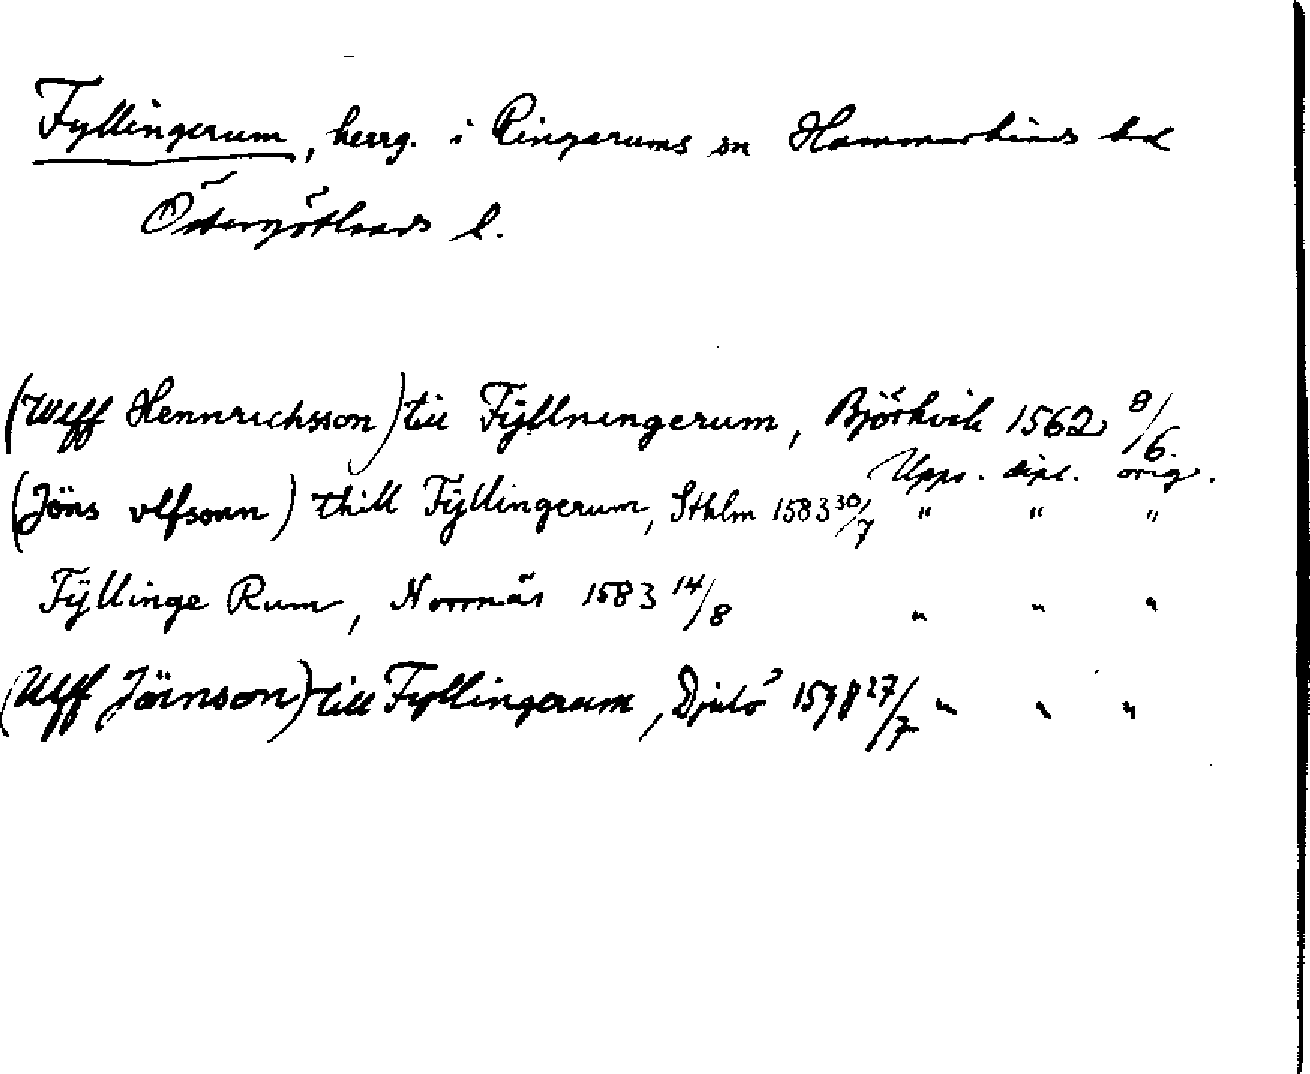 Fyllingerum, herrg. i Ringarums sn Hammarkinds hd
Östergötlands l.
(Wlff Hennrichsson) till Fÿllningerum, Björkvik 1562 8/6.
Upps. dipl. orig.
(Jöns vlfsonn) thill Fÿllingerum, Sthlm 1583 30/7 " " "
Fÿllinge Rum, Norrnäs 1583 14/8 " " "
(Ulff Jönson) till Fyllingerum, Djulö 1598 27/7 " " "